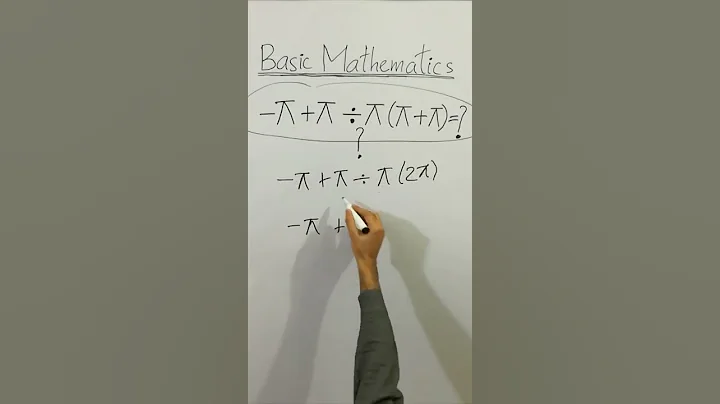 Basic Mathematics
-π+π÷π(π+π)=?
?
-π+π÷π(2π)
-π +